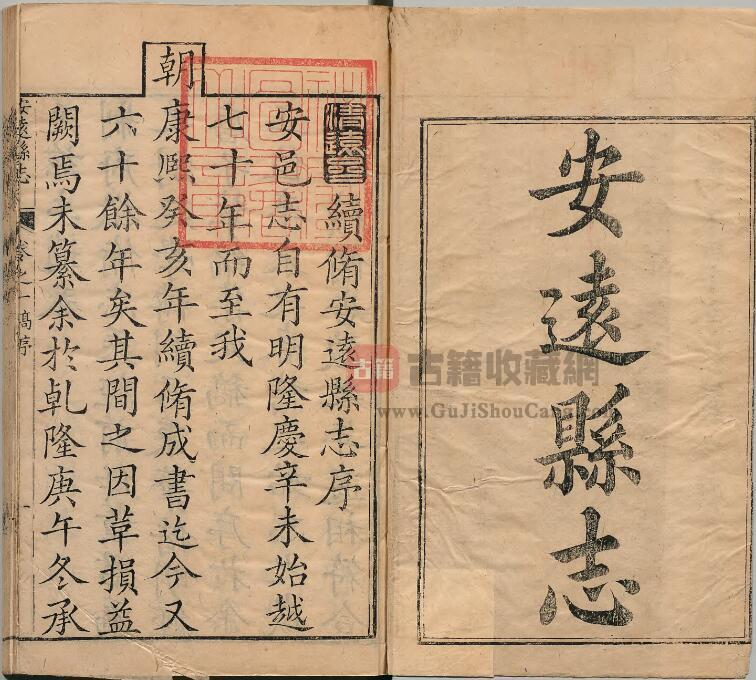 安遠縣志
續脩安遠縣志序
安邑志自有明隆慶辛未始越
七十年而至我
朝
康熙癸亥年續脩成書迄今又
六十餘年矣其間之因革損益
闕焉未纂余於乹隆庚午冬承
安遠縣志
卷之一
序
古籍
古籍收藏網
www.GuJiShouCang.com